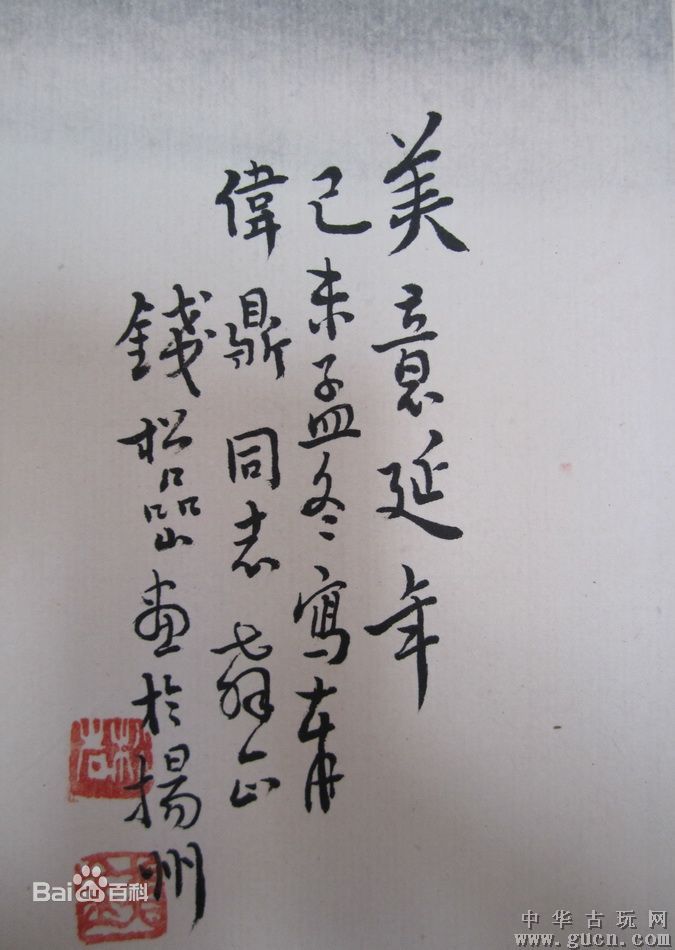 美意延年
己未孟冬写奉
偉鼎同志 哂正
錢松嵒画於揚州
松嵒
錢
Bai百科
中华古玩网
www.gucn.com